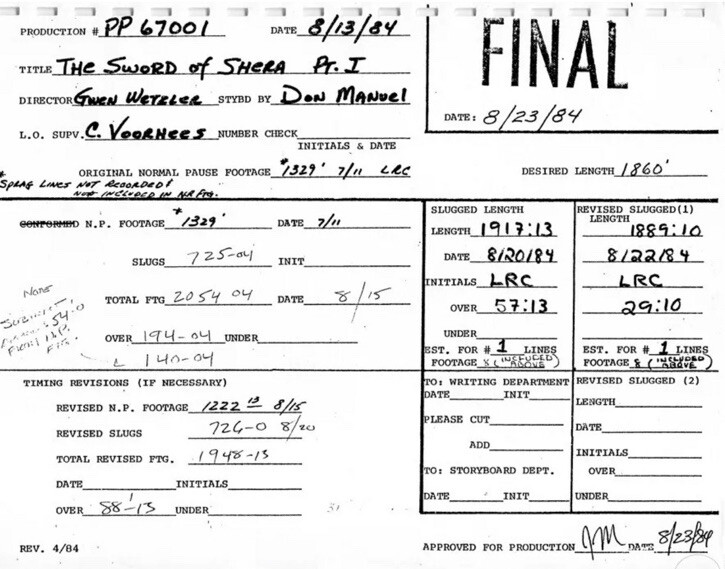 PRODUCTION # PP 67001 DATE 8/13/84
TITLE THE SWORD OF SHERA PT. I
DIRECTOR GWEN WETZLER STYBD BY DON MANUEL
L.O. SUPV. C. VOORHEES NUMBER CHECK
INITIALS & DATE
* ORIGINAL NORMAL PAUSE FOOTAGE *1329' 7/11 LRC
SPRAG LINES NOT RECORDED!
NOT INCLUDED IN N.P. FTG.
FINAL
DATE: 8/23/84
DESIRED LENGTH 1860'
CONFORMED N.P. FOOTAGE *1329' DATE 7/11
SLUGS 725-04 INIT
TOTAL FTG 2054 04 DATE 8/15
NOTE
54-0
FROM N.P.
FTG.
OVER 194-04 UNDER
140-04
SLUGGED LENGTH
LENGTH 1917:13
DATE 8/20/84
INITIALS LRC
OVER 57:13
UNDER
EST. FOR # 1 LINES
FOOTAGE (INCLUDED ABOVE)
REVISED SLUGGED(1)
LENGTH
1889:10
8/22/84
LRC
29:10
EST. FOR # 1 LINES
FOOTAGE (INCLUDED ABOVE)
TIMING REVISIONS (IF NECESSARY)
REVISED N.P. FOOTAGE 1222 13 8/15
REVISED SLUGS 726-0 8/20
TOTAL REVISED FTG. 1948-13
DATE INITIALS
OVER 88'-13
TO: WRITING DEPARTMENT
DATE INIT
PLEASE CUT
ADD
TO: STORYBOARD DEPT.
DATE INIT
REVISED SLUGGED (2)
LENGTH
DATE
INITIALS
OVER
UNDER
REV. 4/84
APPROVED FOR PRODUCTION JM DATE 8/23/84